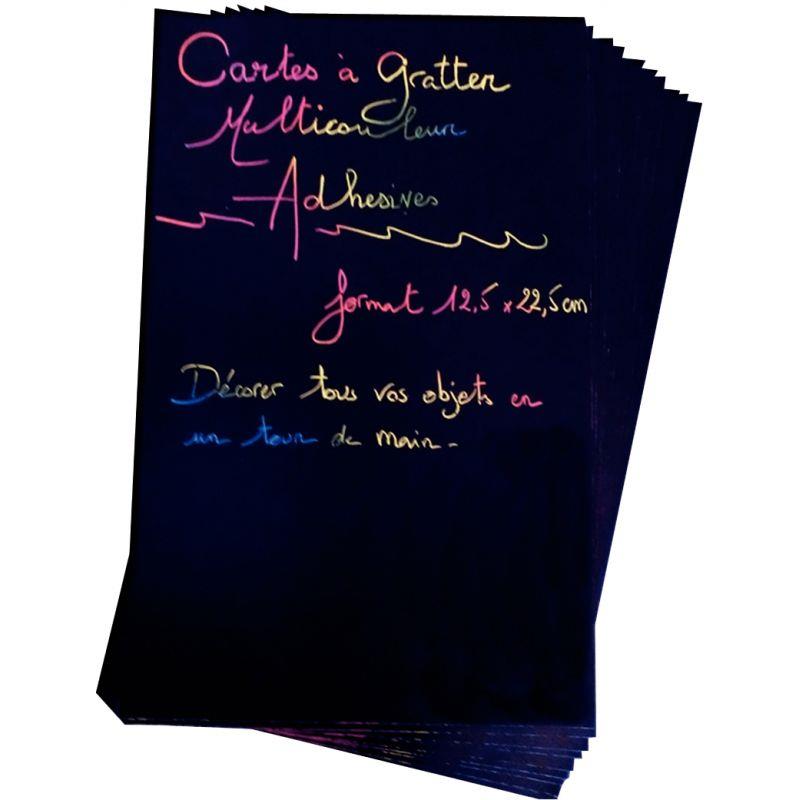 Cartes à Gratter
Multicouleur
Adhesives
format 12,5 x 22,5 cm
Décorer tous vos objets en
un tour de main -